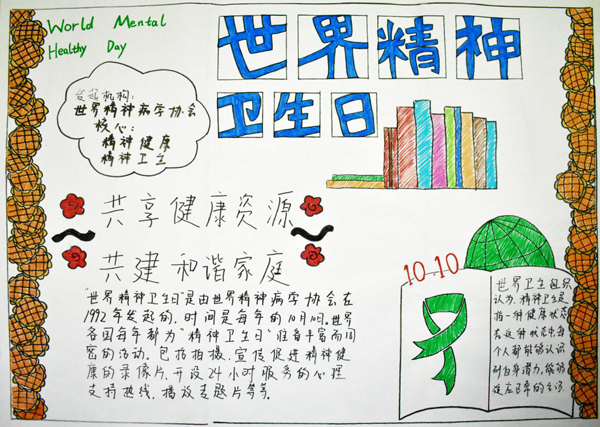 World Mental
Healthy Day
世界精神
卫生日
发起机构:
世界精神病学协会
核心:
精神健康
精神卫生
共享健康资源
共建和谐家庭
"世界精神卫生日"是由世界精神病学协会在
1992年发起的,时间是每年的10月10日.世界
各国每年都为"精神卫生日"准备丰富而周
密的活动。包括拍摄、宣传促进精神健
康的录像片、开设24小时服务的心理
支持热线、播放专题片等等.
10.10
世界卫生组织
认为,精神卫生是
指一种健康状态
在这种状态中,每
个人都能够认识
到自身潜力,能够
适应正常的生活.